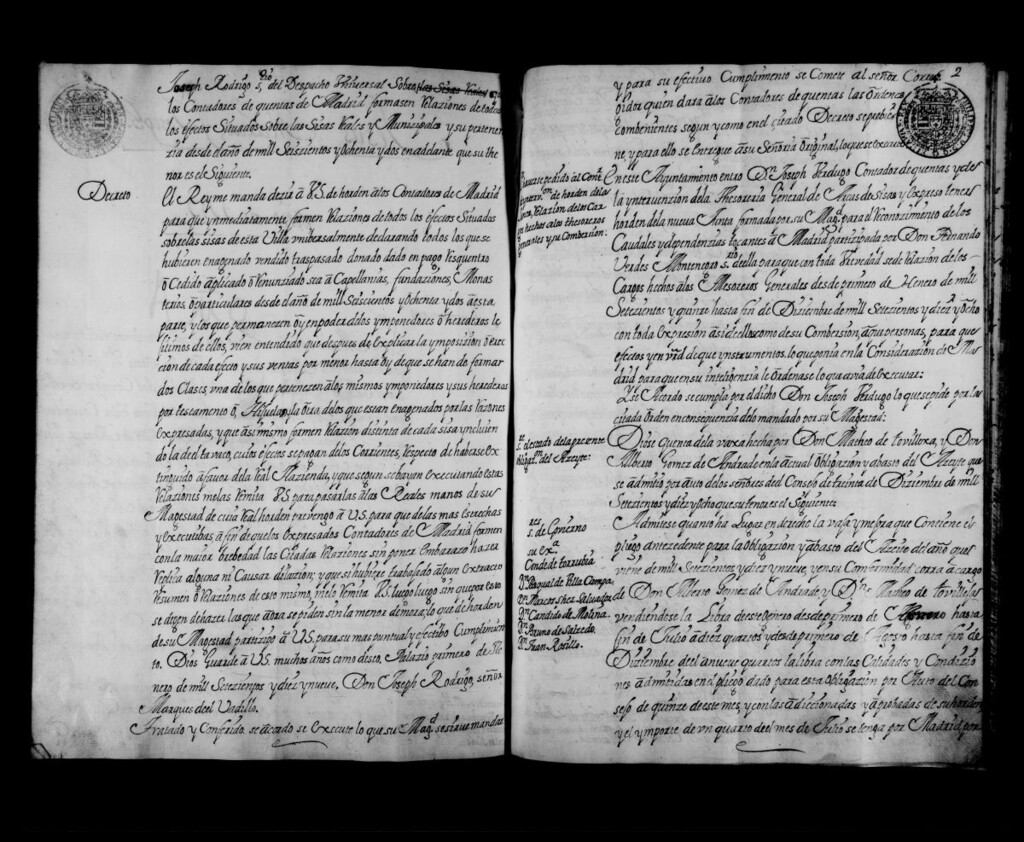 Joseph Rodrigo s.rio del Despacho Vniversal Sobre
los Contadores de quentas de Madrid formasen Relaziones de todos
los efectos Situados sobre las Sisas Reales y Municipales y su pertenen
zia desde el año de mill Seiszientos y Ochenta y dos en adelante que su the
nor es el Siguiente.
Decreto
El Rey me manda dezir a V.S. de horden a los Contadores de Madrid
para que ynmediatamente formen Relaziones de todos los efectos Situados
sobre las sisas de esta Villa vniversalmente declarando todos los que se
hubieren enagenado vendido traspasado donado dado en pago
o Cedido aplicado o Renunziado sea a Capellanias, fundaziones, Monas
terios, o particulares desde el año de mill Seiscientos y Ochenta y dos a esta
parte, y los que permanezen oy en poder de los ymponedores o herederos le
jitimos de ellos, vien entendido que despues de explicar la ymposizion o ere
cion de cada efecto y sus ventas por menor hasta oy de que se han de formar
dos Clases, vna de los que pertenezen a los mismos ymponiedores y sus herederos
por testamento o, Hijuelas, y la otra de los que estan enagenados por las razones
expresadas, y que asi mismo formen Relazion distinta de cada sisa yncluien
do la del tavaco, cuios efectos se pagan de los Corrientes, respecto de haverse ex
tinguido a favor de la Real Hazienda, y que segun se bayan executando estas
Relaziones me las remita V.S. para pasarlas a las Reales manos de su
Magestad de cuia Real horden prevengo a V.S. para que de las mas estrechas
y executibas, a fin de que los expresados Contadores de Madrid formen
con la maior brebedad las Citadas Relaziones sin poner Embarazo hazer
replica alguna ni Causar dilazion; y que si hubiere trabajado algun extracto
resumen o Relaziones de esto mismo, me lo remita V.S. luego luego sin que por esto
se dejen de hazer las que aora se piden sin la menor demora, lo que de horden
de su Magestad partizipo a V.S. para su mas puntual y efectibo Cumplimien
to. Dios Guarde a V.S. muchos años como deseo, Palazio primero de He
nero de mill Setezientos y diez y nueve, Don Joseph Rodrigo, señor
Marques de el Vadillo.
Tratado y Conferido, se acordo se execute lo que su Mag.d se sirve mandar
2
y para su efectivo Cumplimiento se Comete al señor Correx
gidor quien dara a los Contadores de quentas las Ordenes
combenientes segun y como en el citado Decreto se prebie
ne, y para ello se entregue a su Señoria Original, lo que se executo
En este Ayuntamiento entro Dn Joseph Verdugo Contador de quentas y de
la yntervenzion de la Thesoreria General de Arcas de Sisas y expreso tener
horden de la nueva Junta formada por su Mag.d para el reconozimiento de los
Caudales y dependenzias tocantes a Madrid partizipada por Don Fernando
Verdes Montenegro s.rio de ella para que con toda brevedad se de relazion de los
Cargos hechos a los thesoreros Generales desde primero de Henero de mill
Setezientos y quinze hasta fin de Diziembre de mill Setezientos y diez y ocho
con toda Expresion asi de ellos como de su Combersion, a que personas, para que
efectos y en vrd de que ynstrumentos, lo que ponia en la Consideracion de Ma
drid para que en su inteligenzia le Ordenase lo que avia de Executar:
Y se Acordo se cumpla por el dicho Don Joseph Verdugo lo que se pide por la
citada Orden en consequenzia de lo mandado por su Magestad:
s. el estado de la presente
obligaz.on del Azeyte:
Diose Quenta de la vaxa hecha por Don Matheo de tovilloxa, y Don
Alberto Gomez de Andrade en la actual Obligazion y abasto del Azeyte que
se admitio por auto de los señores del Consejo de treinta de Diziembre de mill
Setezientos y diez y ocho que su tenor es el Siguiente:
Admitese quanto ha Lugar en derecho la vaja y mejora que Contiene el
pliego antezedente para la Obligazion y abasto del Azeite del año que
viene de mill Setezientos y diez y nueve, y en su Conformidad corra a cargo
de Don Alberto Gomez de Andrade y Dn Matheo de
vendiendose la Libra de este genero desde primero de Henero hasta
fin de Julio a diez quartos y desde primero de Agosto hasta fin de
Diziembre de el a nueve quartos la libra con las Calidades y Condizio
nes admitidas en el pliego dado para esta Obligazion por Auto del Con
sejo de quinze de este mes, y con las adiccionadas y aprobadas de su horden
y el ymporte de vn quarto de el mes de Julio se tenga por Madrid por
s.res
de Consexo
su ex.a
Conde de torrubia
Dn Pasqual de Villa Campa
Dn Marcos shez Salvador
Dn Candido de Molina
Dn Bruno de Salzedo
Dn Juan Rosillo.